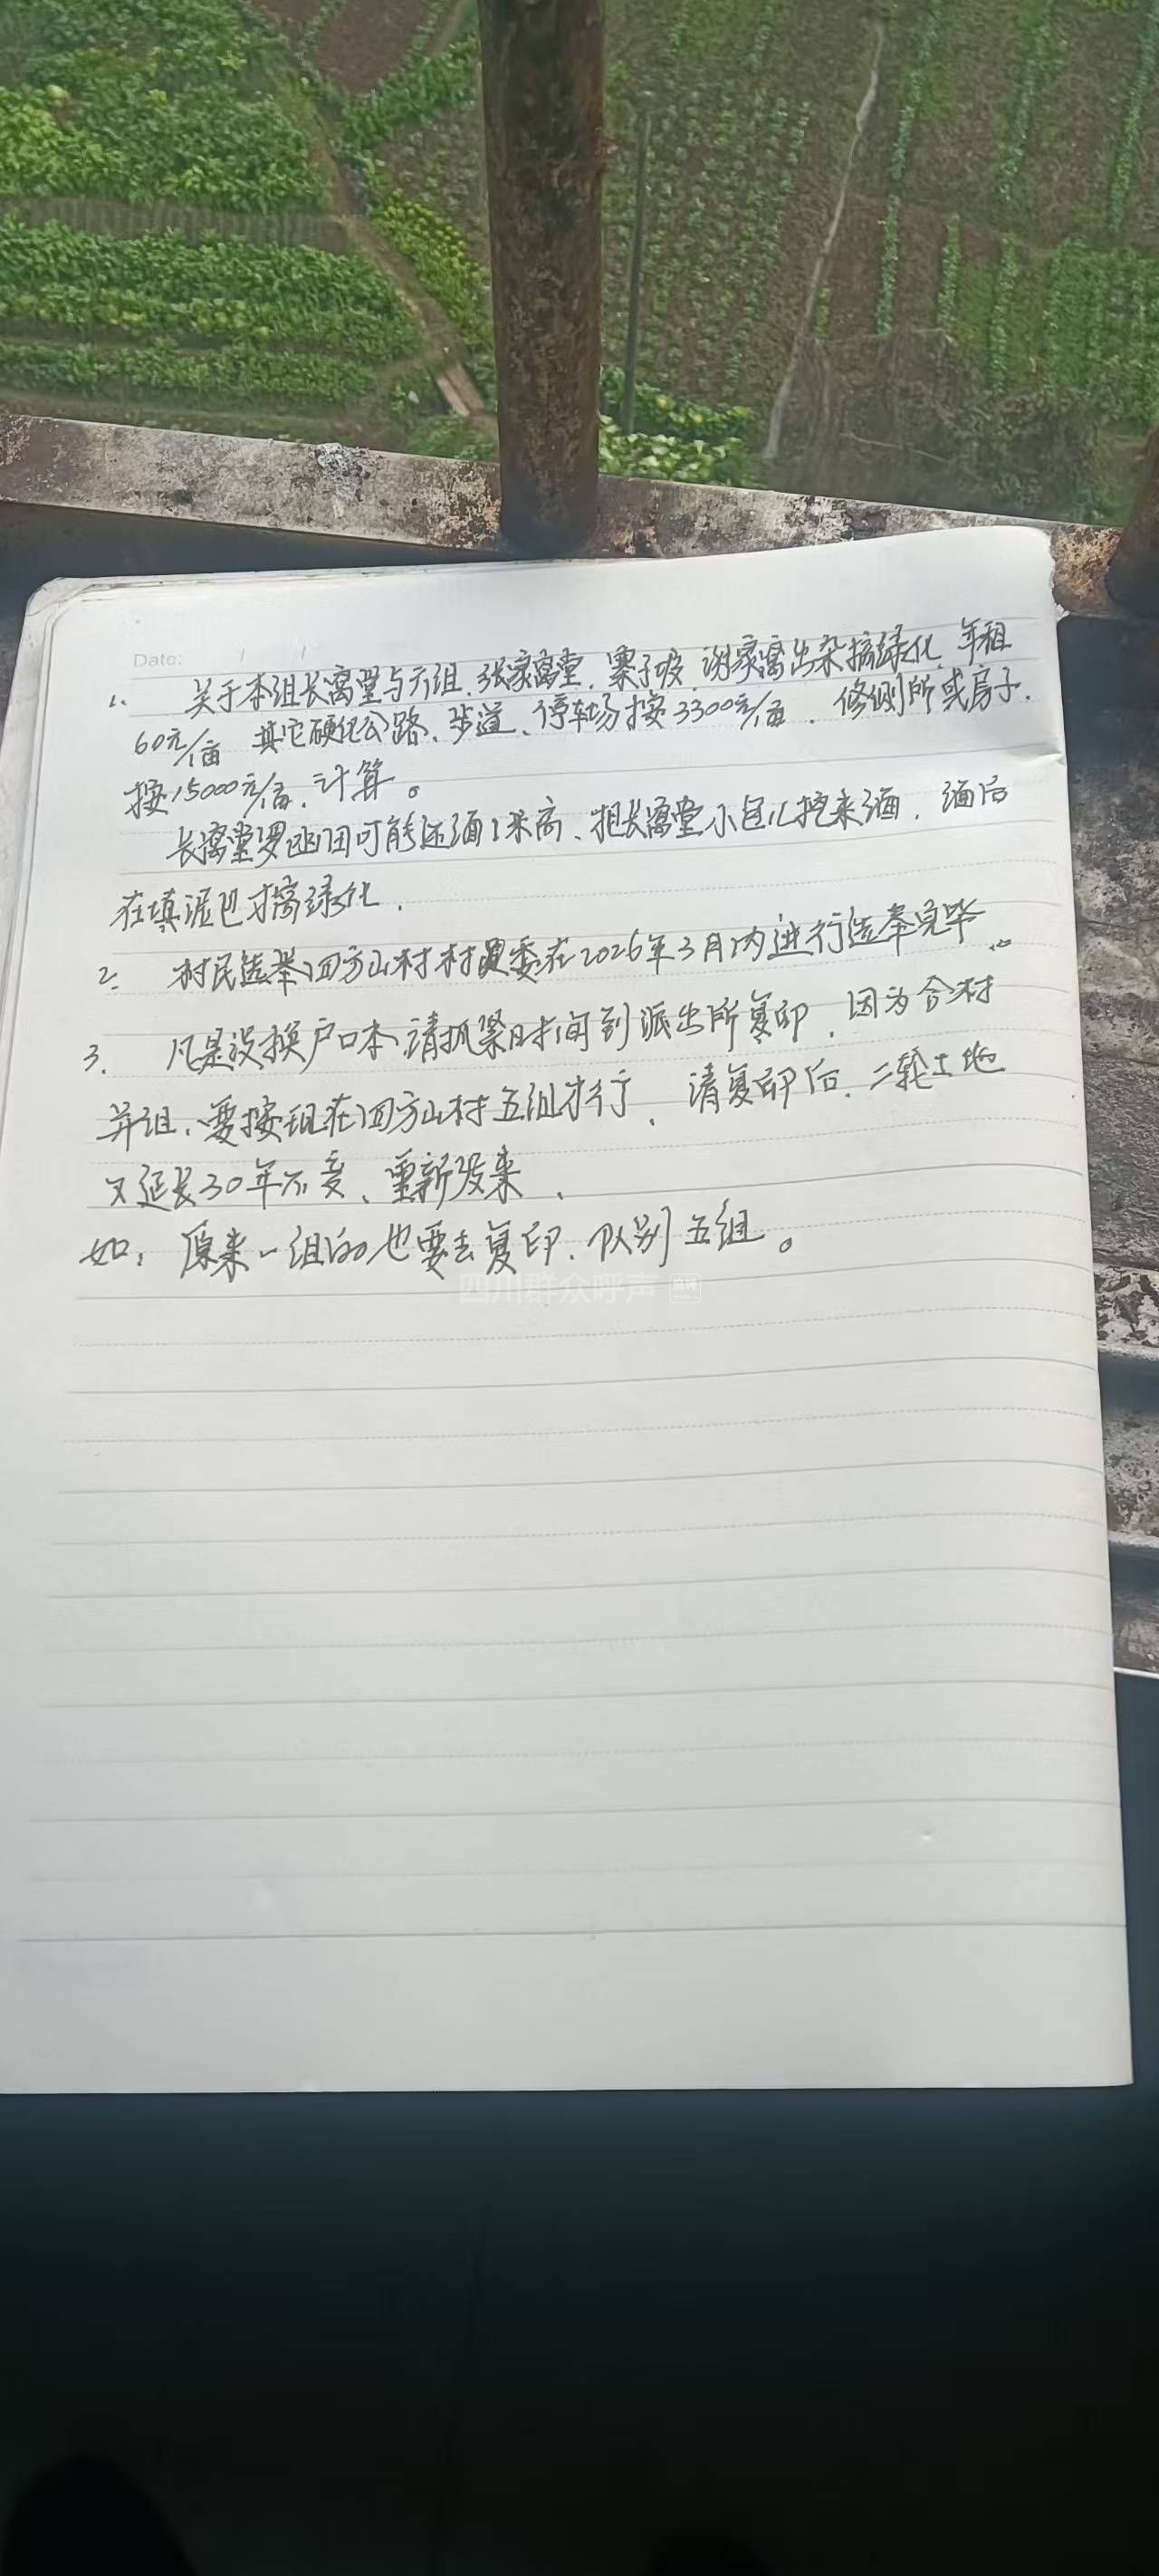 Date: / /
1. 关于本组长窝堂与六组、张家窝堂、寨子坡、谢家窝出杂搞绿化、年租
60元/亩 其它硬化公路、步道、停车场按3300元/亩、修侧所或房子、
按15000元/亩、计算。
长窝堂罗 田可能还 1米高、把长窝堂小包儿挖来 、 后
在填泥巴才搞绿化、
2. 村民选举四方山村村 委在2026年3月内进行选举完毕
3. 凡是没换户口本、请抓紧时间到派出所复印、因为合村
并组、要按现在四方山村五组才行、请复印后、二轮土地
又延长30年不变、重新发来、
如：原来一组的也要去复印、队别五组。
四川群众呼声